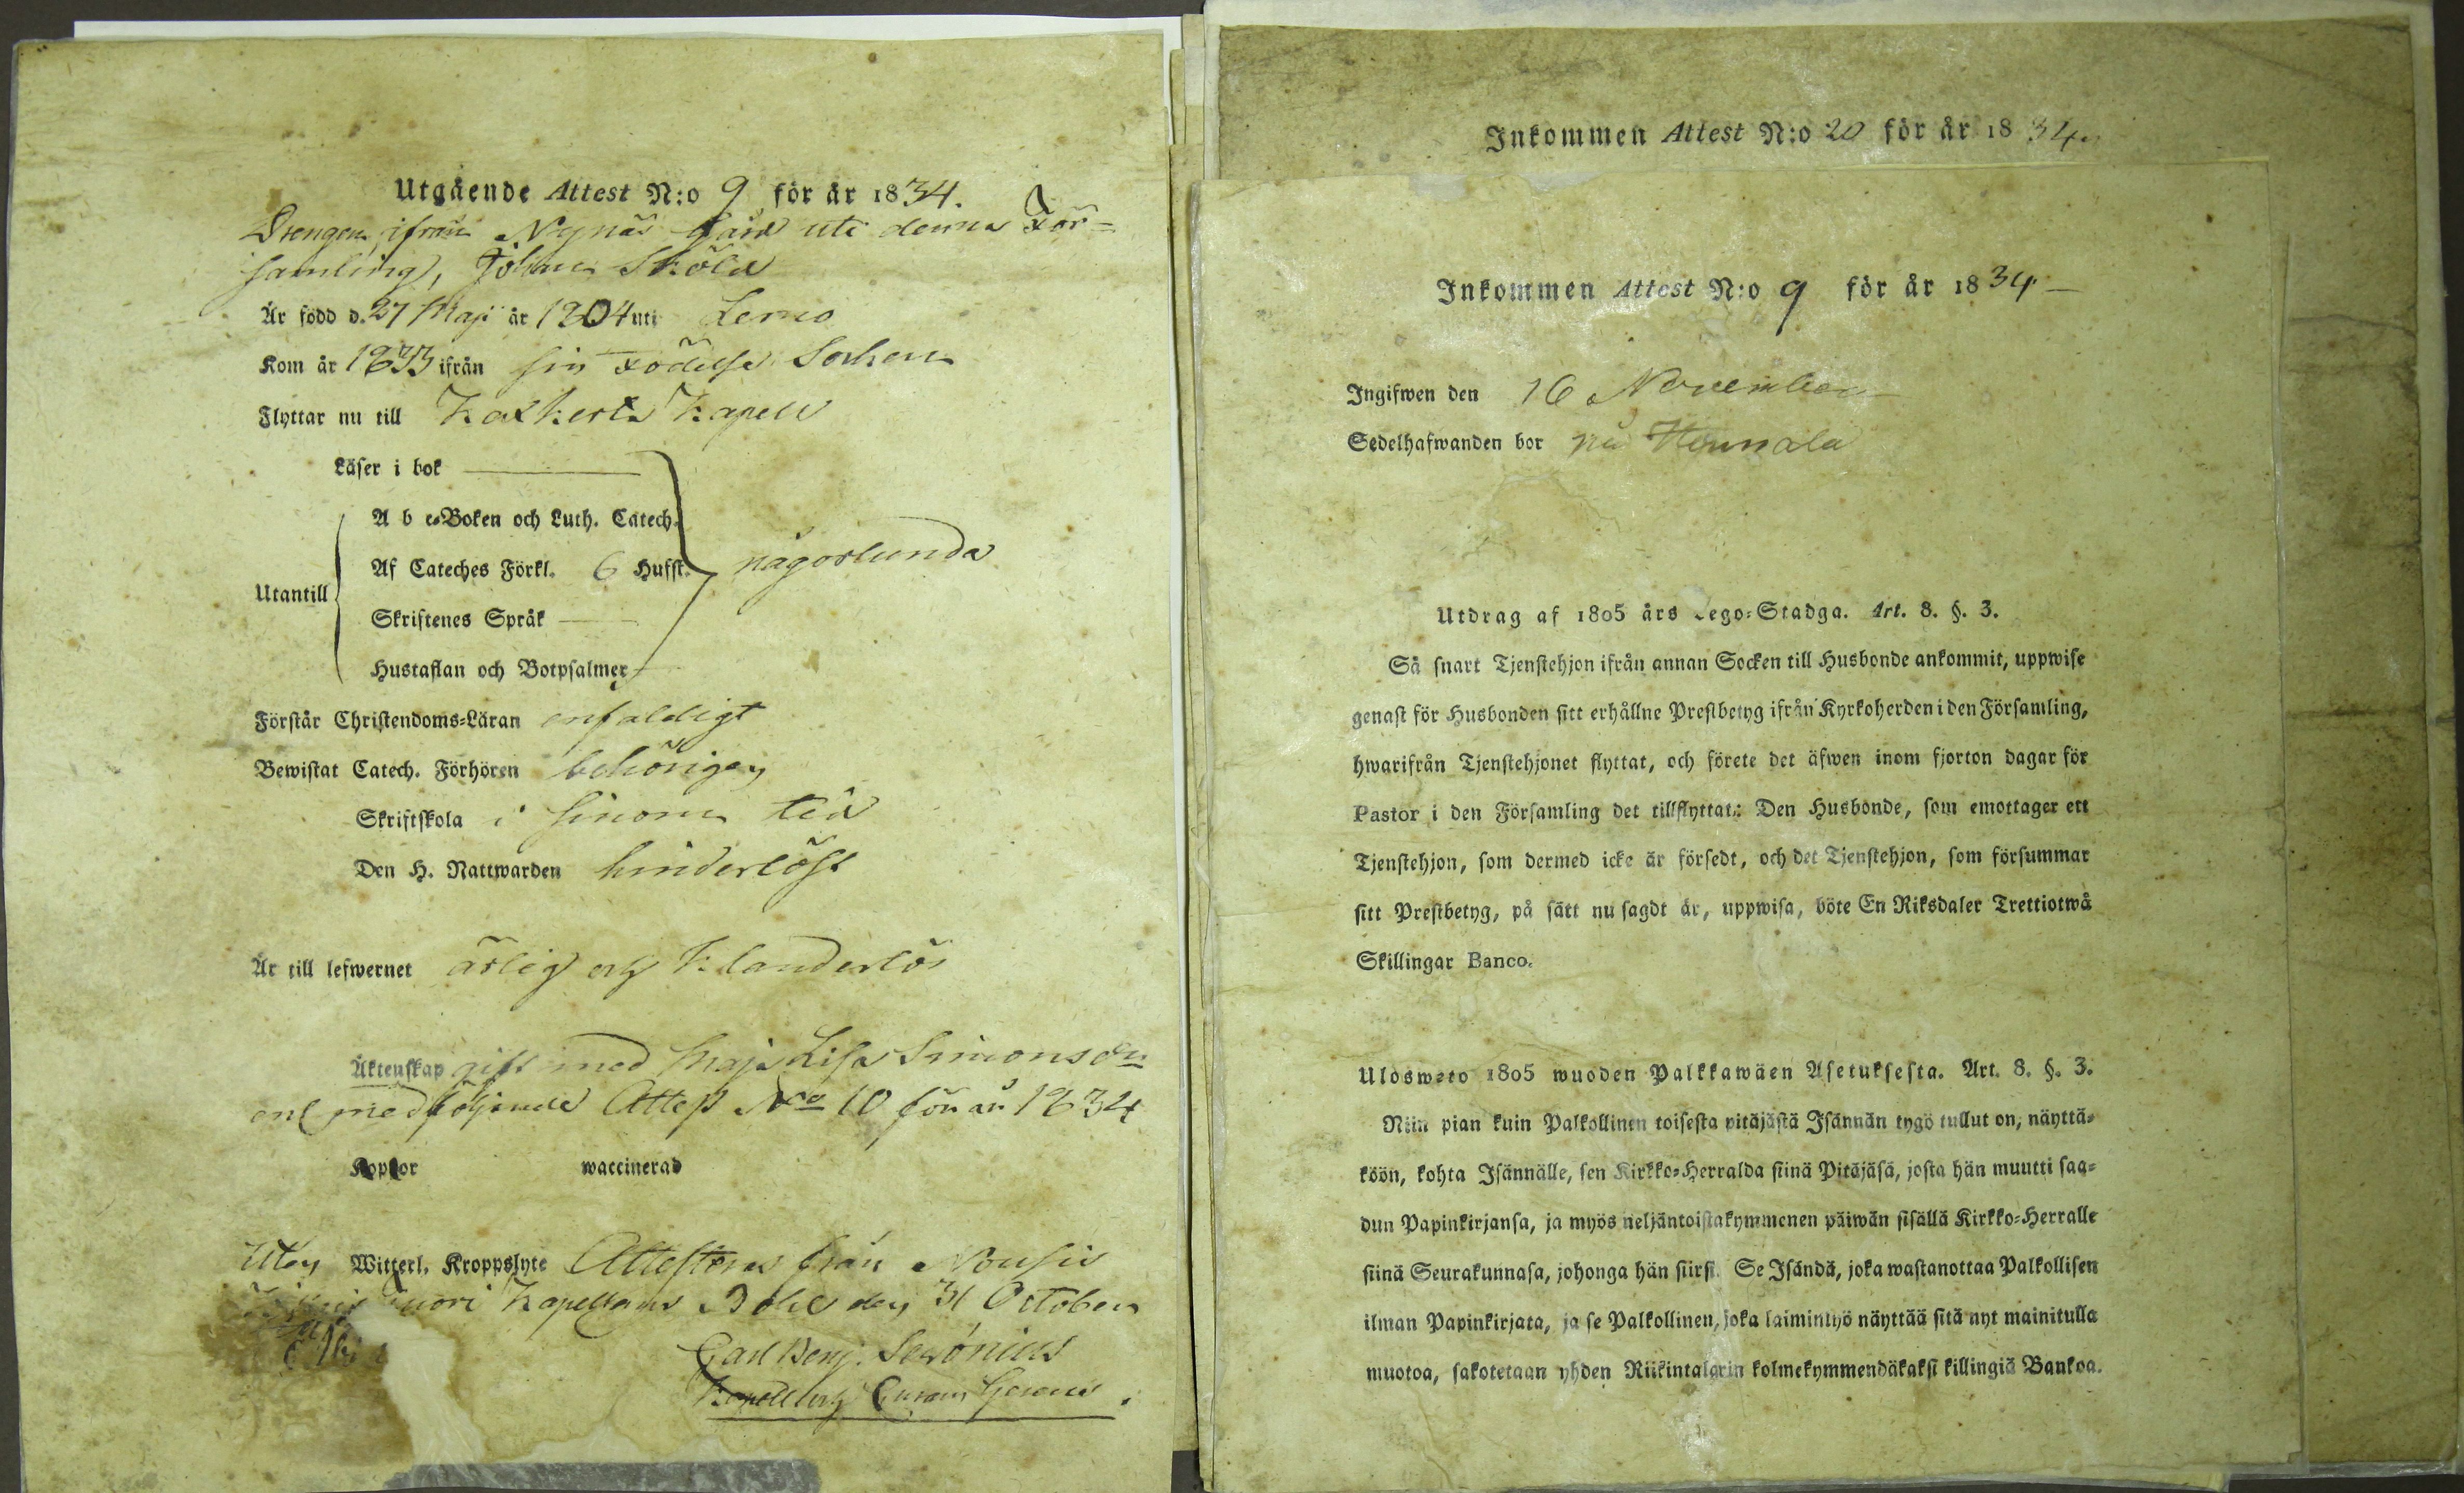 Utgående Attest N:o 9 för år 1834.
Drengen ifrån Nynäs Gård uti denna För-
samling, Johan Sköld
Är född d. 27 Maji år 1804 uti Lemo
Kom år 1833 ifrån sin Födelse Socken
Flyttar nu till Kaxkerta Kapell
Läser i bok
A b c-Boken och Luth. Catech.
Af Cateches Förkl. 6 Hufst. någorlunda
Utantill
Skriftenes Språk
Hustaflan och Botpsalmer
Förstår Christendoms-Läran enfaldigt
Bewistat Catech. Förhören behörigen
Skriftskola i sinom tid
Den H. Nattwarden hinderlöst
Är till lefwernet ärlig och klanderlös
Äktenskap gift med Maja Lisa Simonsdr
enl medföljande Attest No 10 för år 1834
Koppor waccinerad
Utan Witterl. Kroppslyte Attesteras från Nousis
Kapellans Bohl den 31 October
Carl Benj.
Inkommen Attest N:o 20 för år 1834.
Inkommen Attest N:o 9 för år 1834
Ingifwen den 16 November
Sedelhafwanden bor på
Utdrag af 1805 års Lego-Stadga. Art. 8. §. 3.
Så snart Tjenstehjon ifrån annan Socken till Husbonde ankommit, uppwise
genast för Husbonden sitt erhållne Prestbetyg ifrån Kyrkoherden i den Församling,
hwarifrån Tjenstehjonet flyttat, och förete det äfwen inom fjorton dagar för
Pastor i den Församling det tillflyttat: Den Husbonde, som emottager ett
Tjenstehjon, som dermed icke är försedt, och det Tjenstehjon, som försummar
sitt Prestbetyg, på sätt nu sagdt är, uppwisa, böte En Riksdaler Trettiotwå
Skillingar Banco.
Ulosweto 1805 wuoden Palkkawäen Asetuksesta. Art. 8. §. 3.
Niin pian kuin Palkollinen toisesta pitäjästä Isännän tygö tullut on, näyttä-
köön, kohta Isännälle, sen Kirkko-Herralda siinä Pitäjäsä, josta hän muutti saa-
dun Papinkirjansa, ja myös neljäntoistakymmenen päiwän sisällä Kirkko-Herralle
siinä Seurakunnasa, johonga hän siirsi. Se Isändä, joka wastanottaa Palkollisen
ilman Papinkirjata, ja se Palkollinen, joka laiminlyö näyttää sitä nyt mainitulla
muotoa, sakotetaan yhden Riikintalarin kolmekymmendäkaksi killingiä Bankoa.